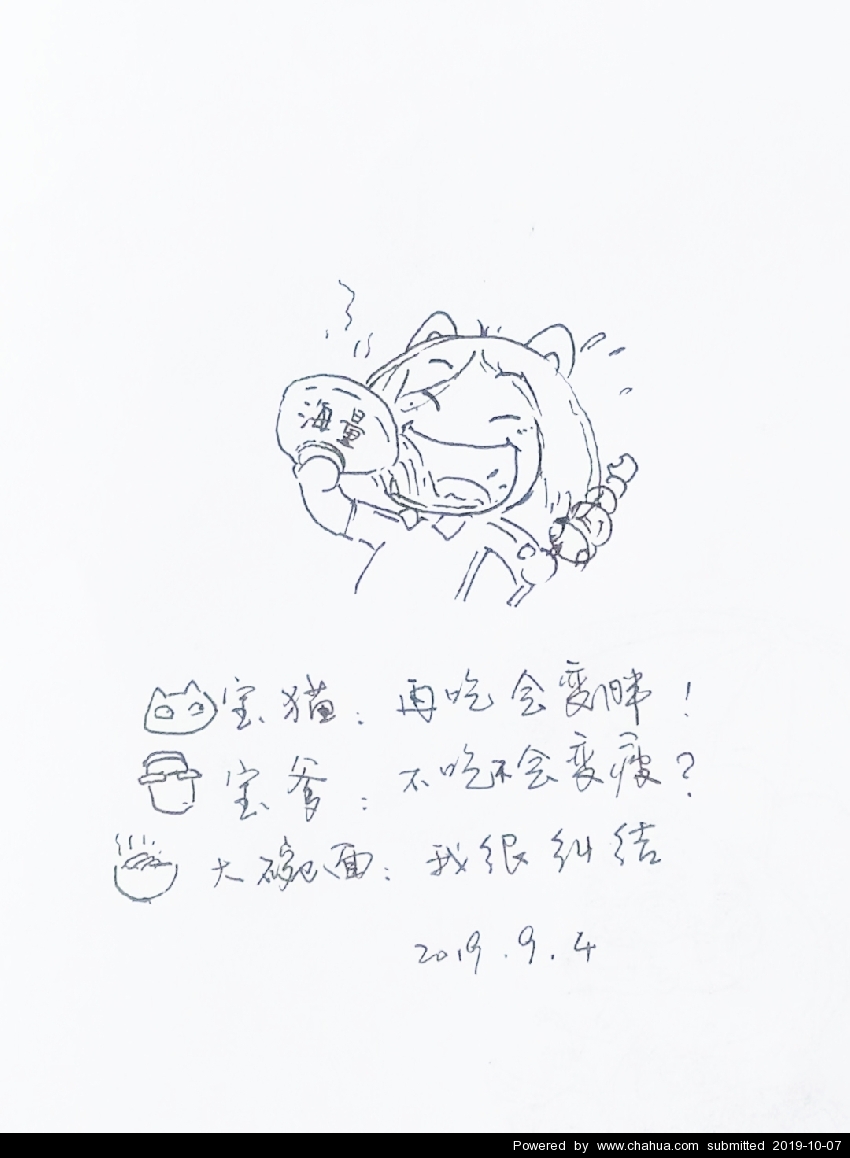 海量
宝猫：再吃会变胖！
宝爹：不吃不会变瘦？
大碗面：我很纠结
2019.9.4
Powered by www.chahua.com submitted 2019-10-07